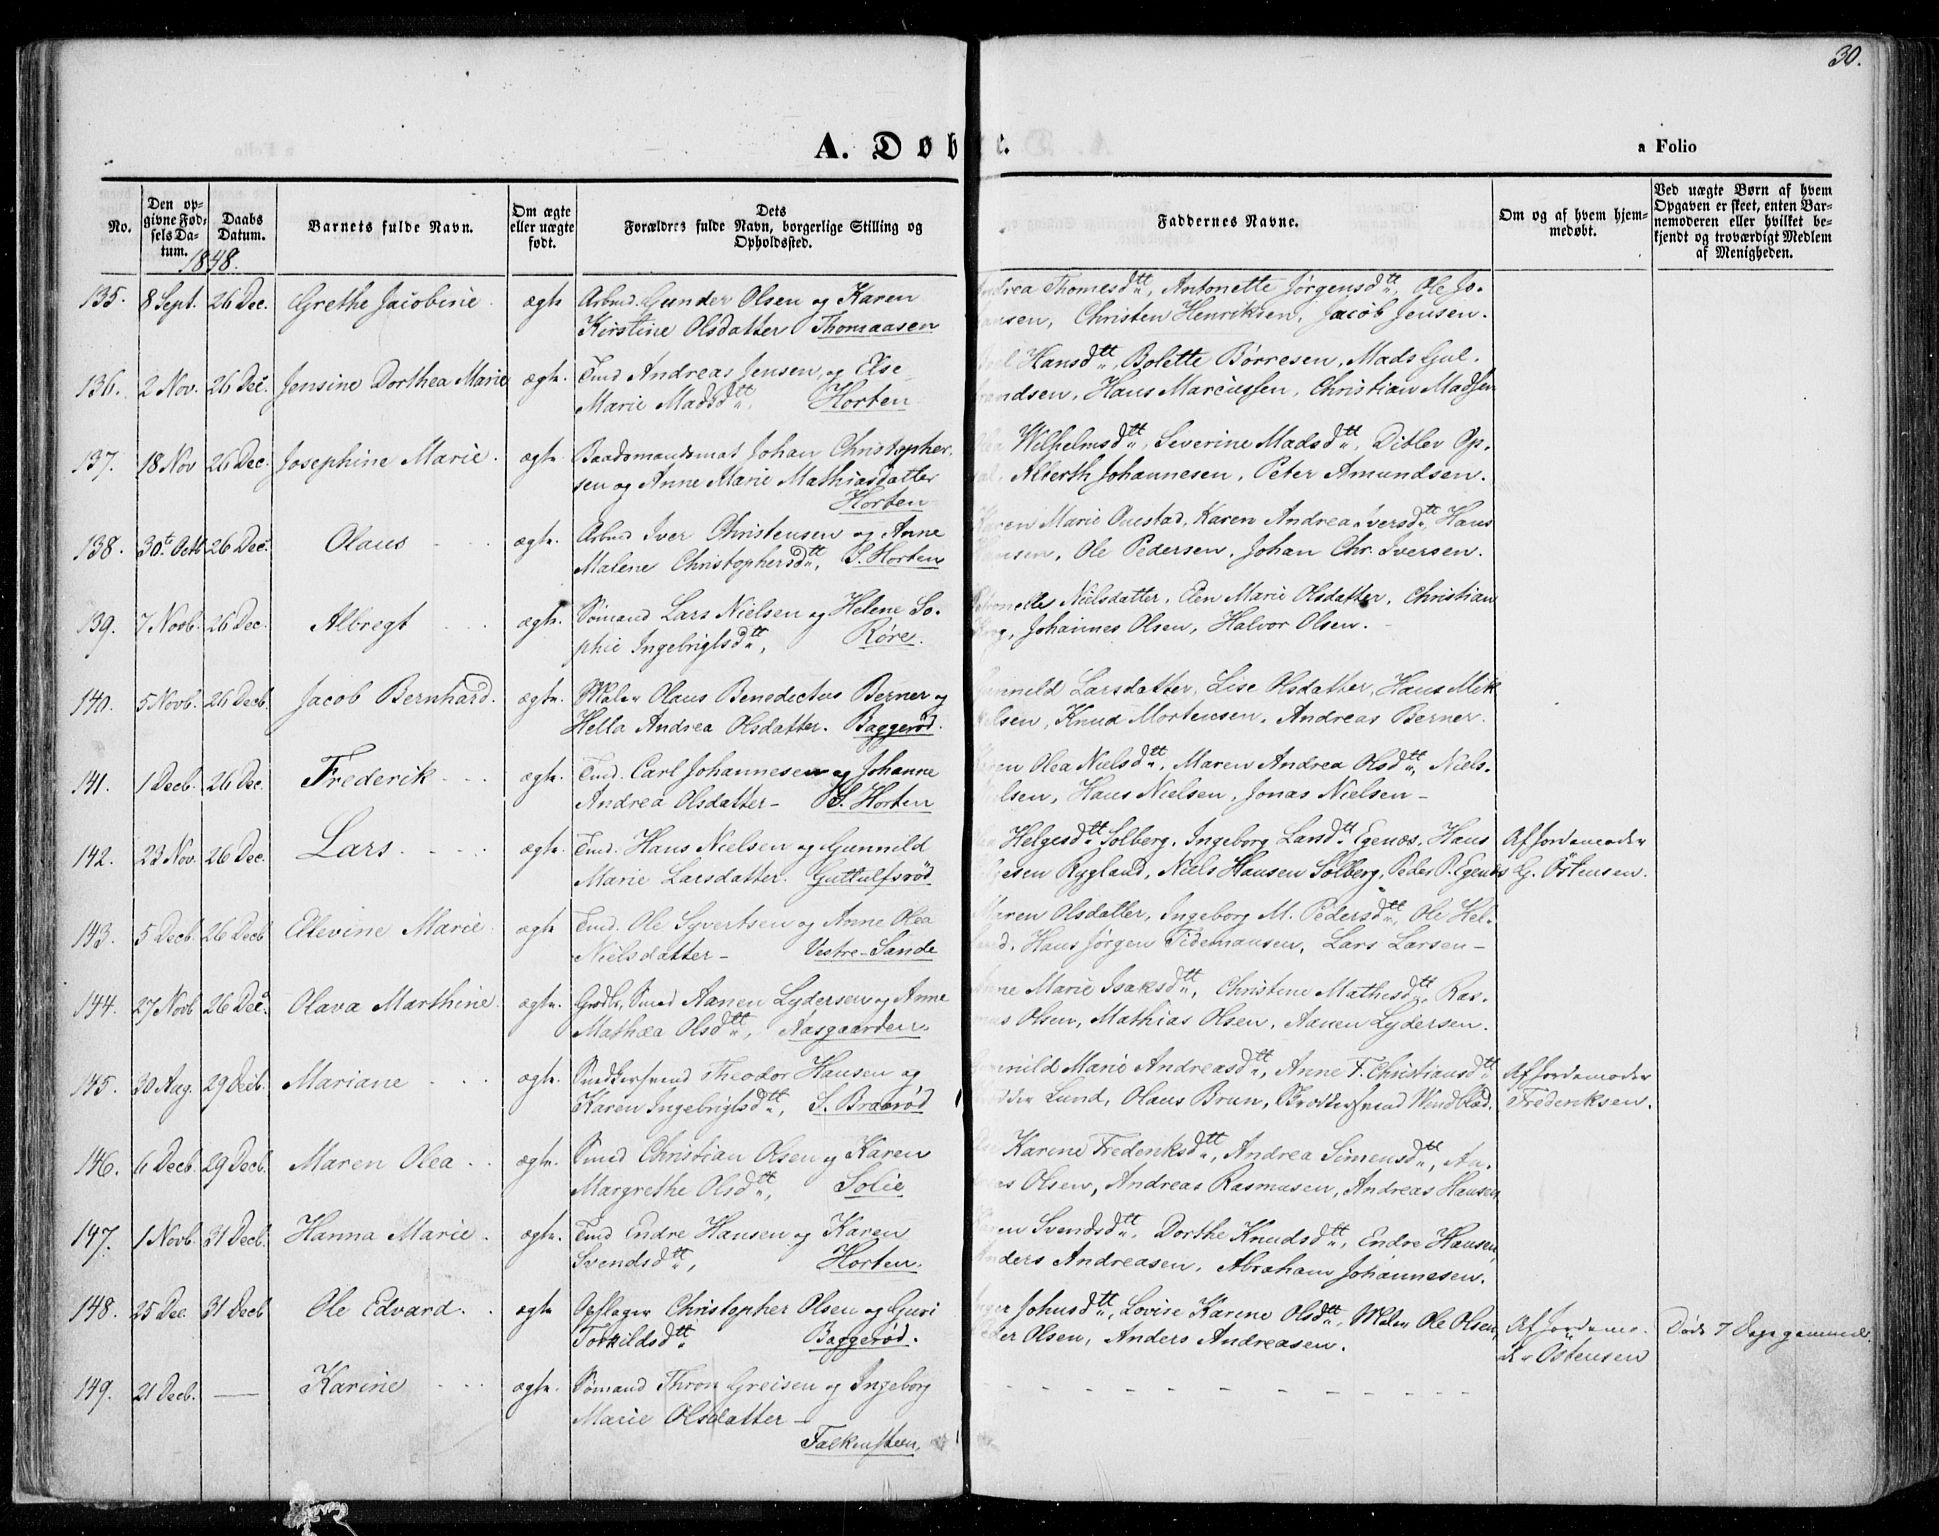 30.
A. Døbte.
a Folio
No.
Den opgivne Fødsels Datum.
Daabs Datum.
Barnets fulde Navn.
Om ægte eller uægte født.
Dets Forældres fulde Navn, borgerlige Stilling og Opholdssted.
Faddernes Navne.
Om og af hvem hjemmedøbt.
Ved uægte Børn af hvem Opgaven er skeet, enten Barnemoderen eller hvilket bekjendt og troværdigt Medlem af Menigheden.
1848.
135. 8 Sept. 26 Dec. Grethe Jacobine ægte Arbmd. Gunder Olsen og Karen
Kirstine Olsdatter Thomaasen
Thomesdtt, Antonette Jørgensdtt, Ole Jo-
Christen Henriksen, Jacob Jensen.
136. 2 Nov. 26 Dec. Jensine Dorthea Marie ægte. Tmd Andreas Jensen, og Else
Marie Madsdtt. Horten
Hansdtt, Bolette Børresen, Mads Gul-
brandsen, Hans Marcussen, Christian Madsen
137. 18 Nov 26 Dec. Josephine Marie. ægte. Baadsmandsmat Johan Christopher-
sen og Anne Marie Mathiasdatter
Horten
Wilhelmsdtt, Severine Madsdtt, Ditlev Op-
sal, Alberth Johannesen, Peter Amundsen.
138. 30te Octb 26 Dec. Olaus ægte. Arbmd Iver Christensen og Anne
Malene Christophersdtt, S. Horten
Karen Marie Onestad, Karen Andrea Iversdtt, Hans
Hansen, Ole Pedersen, Johan Chr. Iversen.
139. 7 Novb. 26 Dec. Albregt ægte. Sømand Lars Nielsen og Helene So-
phie Ingebrigtsdtt, Røre.
Petronelle Nielsdatter, Elen Marie Olsdatter, Christian
Johannes Olsen, Halvor Olsen.
140. 5 Novb. 26 Decb. Jacob Bernhard. ægte. Maler Olaus Benedictus Berner og
Hella Andrea Olsdatter. Baggerød.
Gunnild Larsdatter, Lise Olsdatter, Hans Mik-
kelsen, Knud Mortensen, Andreas Berner.
141. 1 Decb. 26 Dec. Frederik ægte. Tmd. Carl Johannesen og Johanne
Andrea Olsdatter – S. Horten
Karen Olea Nielsdtt, Maren Andrea Olsdtt, Niels
Nielsen, Hans Nielsen, Jonas Nielsen –
142. 23 Nov. 26 Dec. Lars ægte. Tmd. Hans Nielsen og Gunnild
Marie Larsdatter. Guttulfsröd
Helgesdtt Solberg, Ingeborg Larsdtt Egenæs, Hans
Rygland, Niels Hansen Solberg, Peder P. Egenæs
Af Jordemoder
G. Östensen.
143. 5 Decb. 26 Decb Ellevine Marie ægte Tmd. Ole Syvertsen og Anne Olea
Nielsdatter – Vestre-Sande
Maren Olsdatter, Ingeborg M. Pedersdtt, Ole Hel-
Hans Jørgen Tidemansen, Lars Larsen –
144. 27 Novb 26 Dec. Olava Marthine ægte. Smed Aanen Lydersen og Anne
Mathæa Olsdtt, Aasgaarden.
Anne Marie Isaksdtt, Christene Mathisdtt, Ras-
mus Olsen, Mathias Olsen, Aanen Lydersen.
145. 30 Aug. 29 Decb. Mariane ægte Snedkersvend Theodor Hansen og
Karen Ingebrigtsdtt, S. Braarød
Gunnild Marie Andreasdtt, Anne F. Christiansdtt
Lund, Olaus Brun, Wendblad.
Af Jordemoder
Frederiksen.
146. 6 Decb. 29 Decb. Maren Olea ægte. Smed Christian Olsen og Karen
Margrethe Olsdtt, Solie
Karine Frederiksdtt, Andrea Simensdtt, An-
dreas Olsen, Andreas Rasmusen, Andreas Hansen
147. 1 Novb. 31 Decb. Hanna Marie. ægte. Tmd Endre Hansen og Karen
Svendsdtt, Horten.
Karen Svendsdtt, Dorthe Knudsdtt, Endre Hansen,
Anders Andreasen, Abraham Johannesen.
148. 25 Dec. 31 Decb Ole Edvard. ægte Opslager Christopher Olsen og Guri
Torkildsdtt Baggerød.
Inger Johnsdtt, Lovise Karine Olsdtt, Maler Ole Olsen,
Peder Olsen, Anders Andreasen.
Af Jordemo.
Ostensen
Døde 7 Dage gammel.
149. 21 Decb. — Karine ægte. Sømand Thron Greisen og Ingeborg
Marie Olsdatter –
Falkensteen.